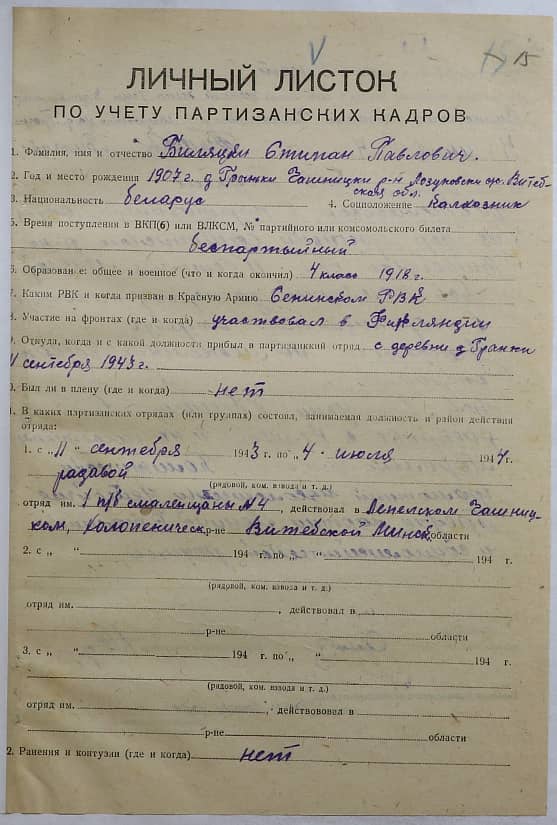 15
ЛИЧНЫЙ ЛИСТОК
ПО УЧЕТУ ПАРТИЗАНСКИХ КАДРОВ
1. Фамилия, имя и отчество Биляцки Стипан Павлович.
2. Год и место рождения 1907 г. д Грынки Чашницки р-н Лозуковски с/с. Витеб-
ская обл.
3. Национальность беларус 4. Соцположение Калхозник
5. Время поступления в ВКП(б) или ВЛКСМ, № партийного или комсомольского билета
беспартыйный
6. Образован е: общее и военное (что и когда окончил) 4 класс 1918 г.
7. Каким РВК и когда призван в Красную Армию Сенинском РВК
8. Участие на фронтах (где и когда) участвовал в Финляндии
9. Откуда, когда и с какой должности прибыл в партизанкий отряд с деревни д Гранки
11 сентебря 1943 г.
10. Был ли в плену (где и когда) нет
11. В каких партизанских отрядах (или группах) состоял, занимаемая должность и район действия
отряда:
1. с „ 11 “ сентебря 1943 г. по „ 4 “ июля 1944 г.
радавой
(рядовой, ком. взвода и т. д.)
отряд им. 1 п/б смаленщаны №4, действовал в Лепелском Чашниц-
ком, Холопеническ р-не Витебской Минск области
2. с „ “ 194 г. по „ “ 194 г.
(рядовой, ком. взвода и т. д.)
отряд им. , действовал в
р-не области
3. с „ “ 194 г. по „ “ 194 г.
(рядовой, ком. взвода и т. д.)
отряд им. , действововал в
р-не области
12. Ранения и контузии (где и когда) нет